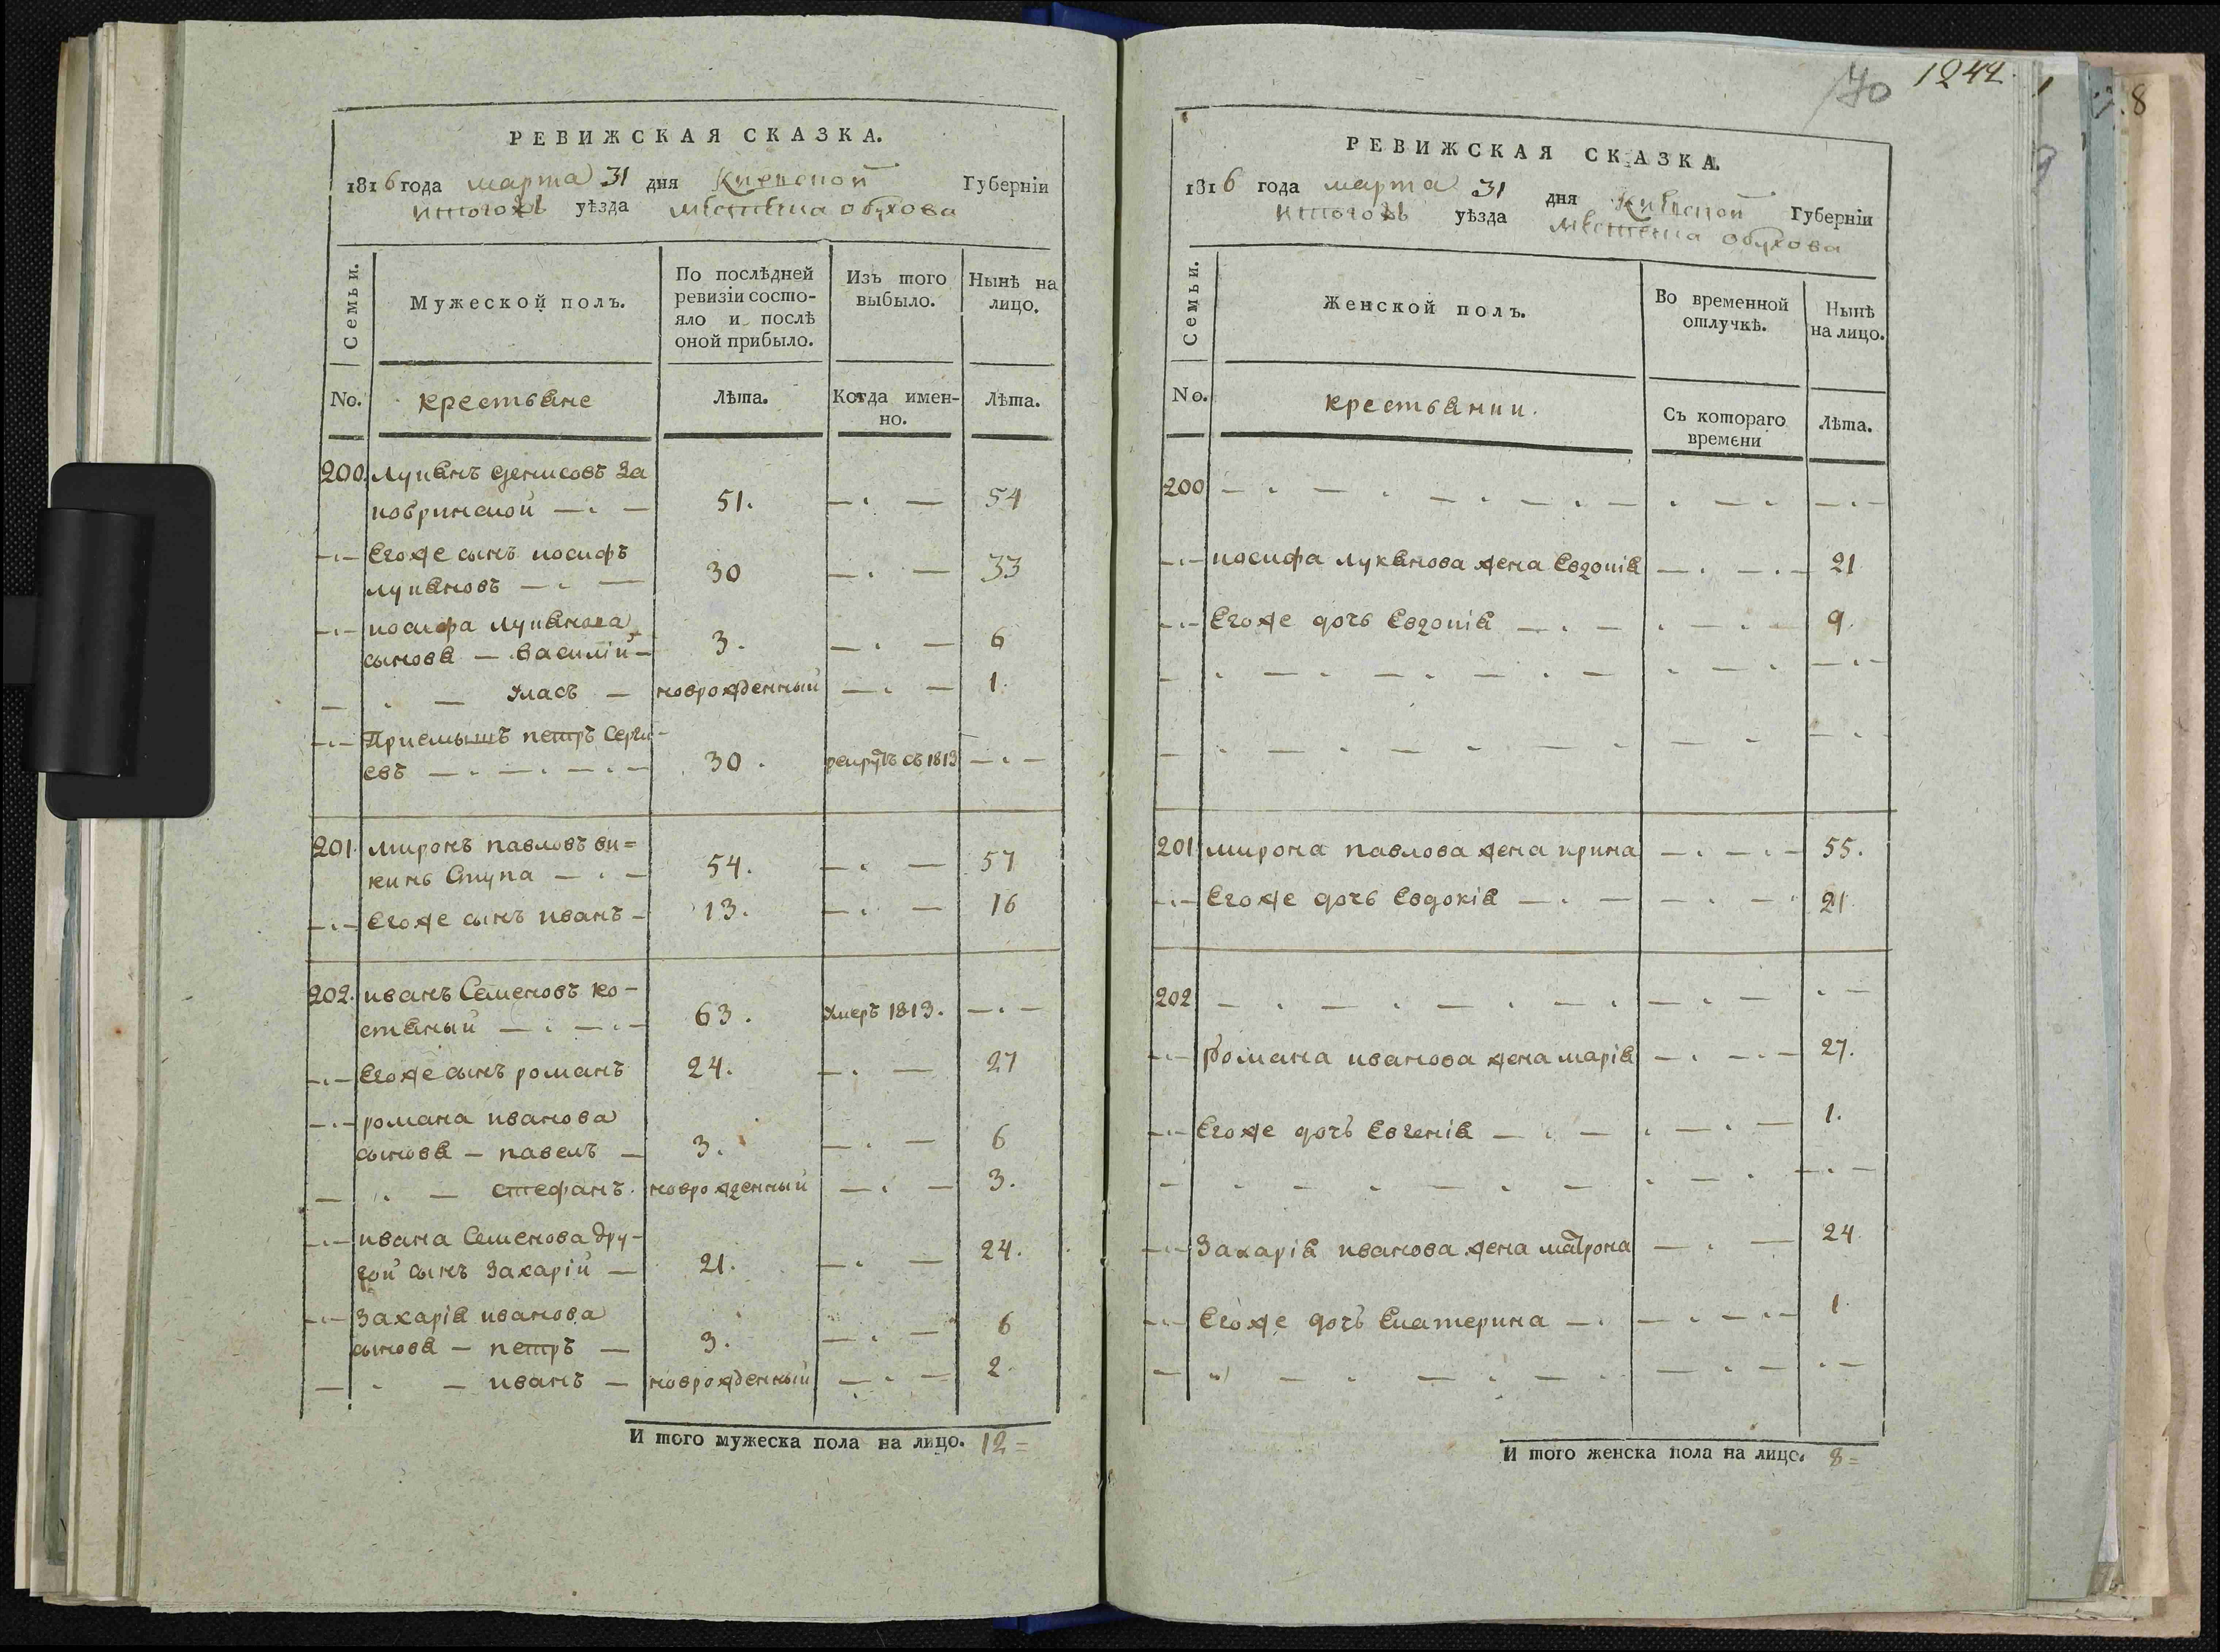 РЕВИЖСКАЯ СКАЗКА.
1816 года марта 31 дня Киевской Губерніи
уѣзда местечка обухова
Семьи.
Мужеской полъ.
По послѣдней
ревизіи состо-
яло и послѣ
оной прибыло.
Изъ того
выбыло.
Нынѣ на
лицо.
No. крестьяне Лѣта. Когда имен-
но. Лѣта.
200. Лукянъ денисовъ За
51. 54
Егоже сынъ иосифъ
лукяновъ 30 33
иосифа лукянова
сыновя — василій — 3. 6
власъ — новрожденный 1.
Приемышъ петръ Серги-
евъ 30. рекрутъ съ 1813
201. миронъ павловъ ви=
кинъ Ступа 54. 57
Егоже сынъ иванъ — 13. 16
202. иванъ Семеновъ ко-
стяный 63. Умеръ 1813.
Егоже сынъ романъ 24. 27
романа иванова
сыновя — павелъ — 3. 6
стефанъ. новрожденный 3.
ивана Семенова дру-
гой сынъ Захарій — 21. 24.
Захарія иванова
сыновя — петръ — 3. 6
иванъ — новрожденный 2.
И того мужеска пола на лицо. 12=
70 1242.
РЕВИЖСКАЯ СКАЗКА.
1816 года марта 31 дня Киевской Губерніи
уѣзда местечка обухова
Семьи.
Женской полъ.
Во временной
отлучкѣ.
Нынѣ
на лицо.
No. крестьянки. Съ котораго
времени Лѣта.
200
иосифа лукянова жена Евдокія 21
Егоже дочь Евдокія 9.
201 мирона павлова жена ирина 55.
Егоже дочь Евдокія 21
202
Романа иванова жена марія 27.
Егоже дочь Евгенія 1.
Захарія иванова жена матрона 24
Егоже дочь Екатерина 1.
И того женска пола на лицо. 8=
8